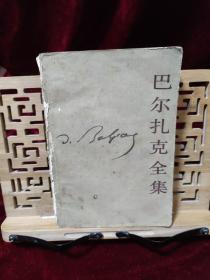 巴尔扎克全集